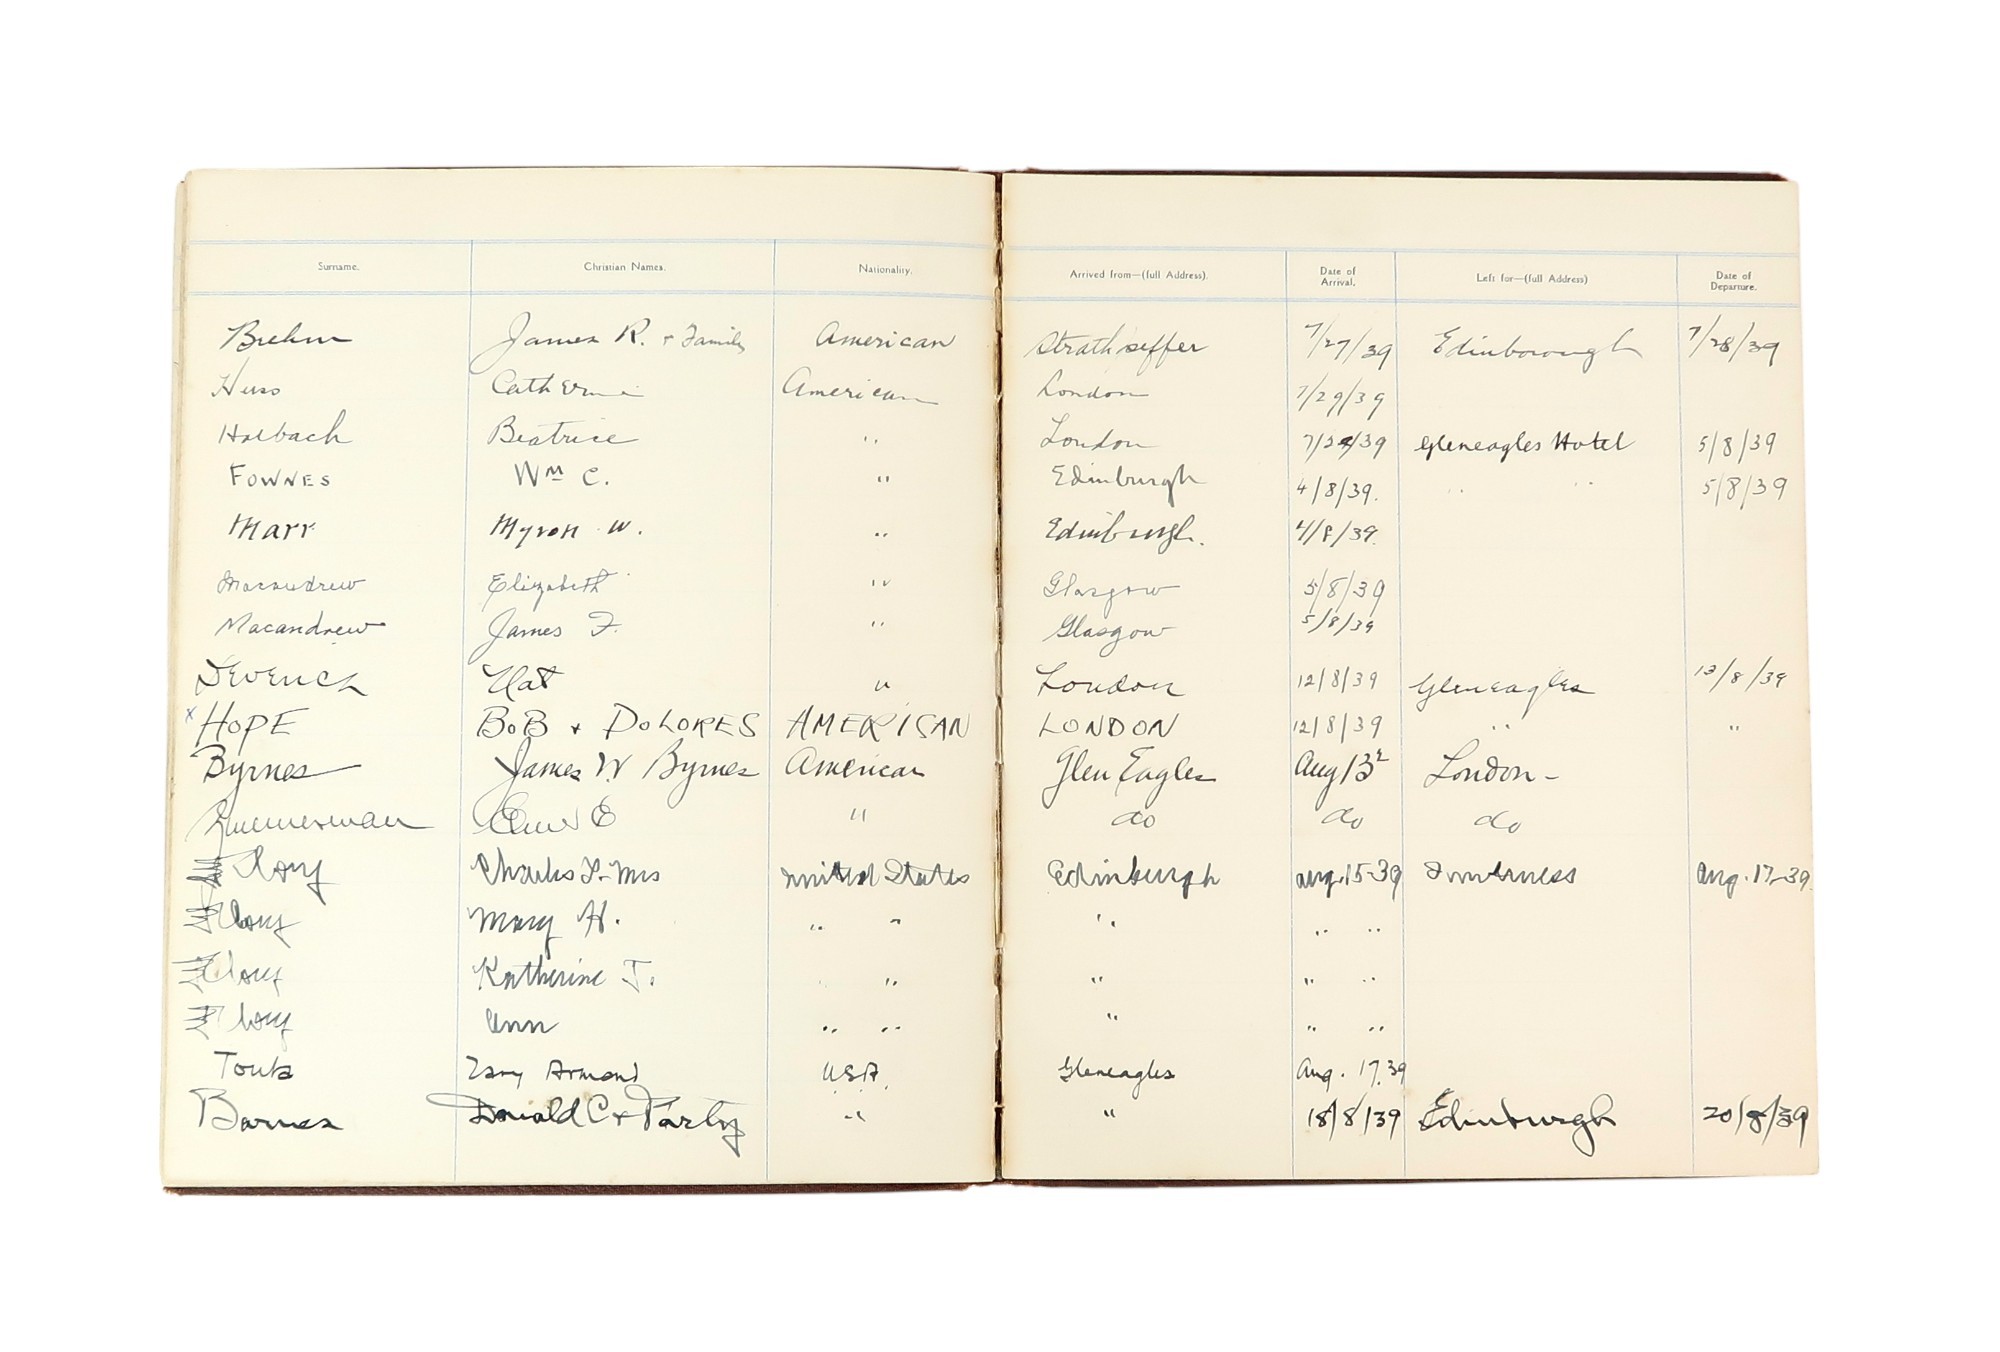 Surname. Christian Names. Nationality. Arrived from—(full Address). Date of Arrival. Left for—(full Address) Date of Departure.
Brehm James R. + Family American Strathpeffer 7/27/39 Edinborough 7/28/39
Huss Catherine American London 7/29/39
Halbach Beatrice " London 7/29/39 Gleneagles Hotel 5/8/39
FOWNES Wm C. " Edinburgh 4/8/39. " " 5/8/39
Marr Myron W. " Edinburgh. 4/8/39.
Macandrew Elizabeth " Glasgow 5/8/39
Macandrew James F. " Glasgow 5/8/39
Deverich Nat " London 12/8/39 Gleneagles 13/8/39
x HOPE BOB + DOLORES AMERICAN LONDON 12/8/39 " "
Byrnes James W Byrnes American Glen Eagles Aug 13 London -
Zimmerman E " do do do
Clory Charles F-Mrs United States Edinburgh Aug. 15-39 Inverness Aug. 17-39
Clory Mary H. " " " " "
Clory Katherine J. " " " "
Clory Ann " " " " "
Armand USA. Gleneagles Aug. 17.39
Barnes Donald C + Party " " 18/8/39 Edinburgh 20/8/39